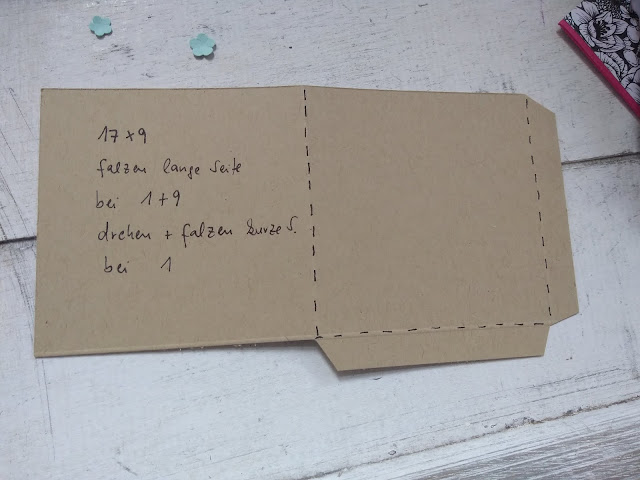 17 x 9
falzen lange Seite
bei 1 + 9
drehen + falzen kurze S.
bei 1